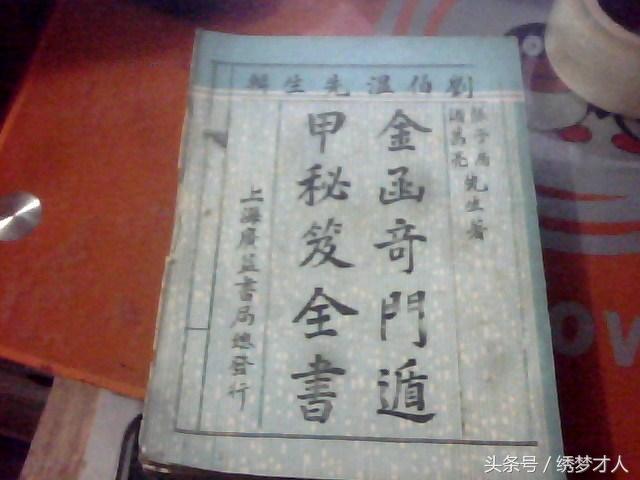 劉伯温先生輯
張子房
諸葛亮
先生著
金函奇門遁
甲秘笈全書
上海廣益書局總發行
ow
头条号／绣梦才人